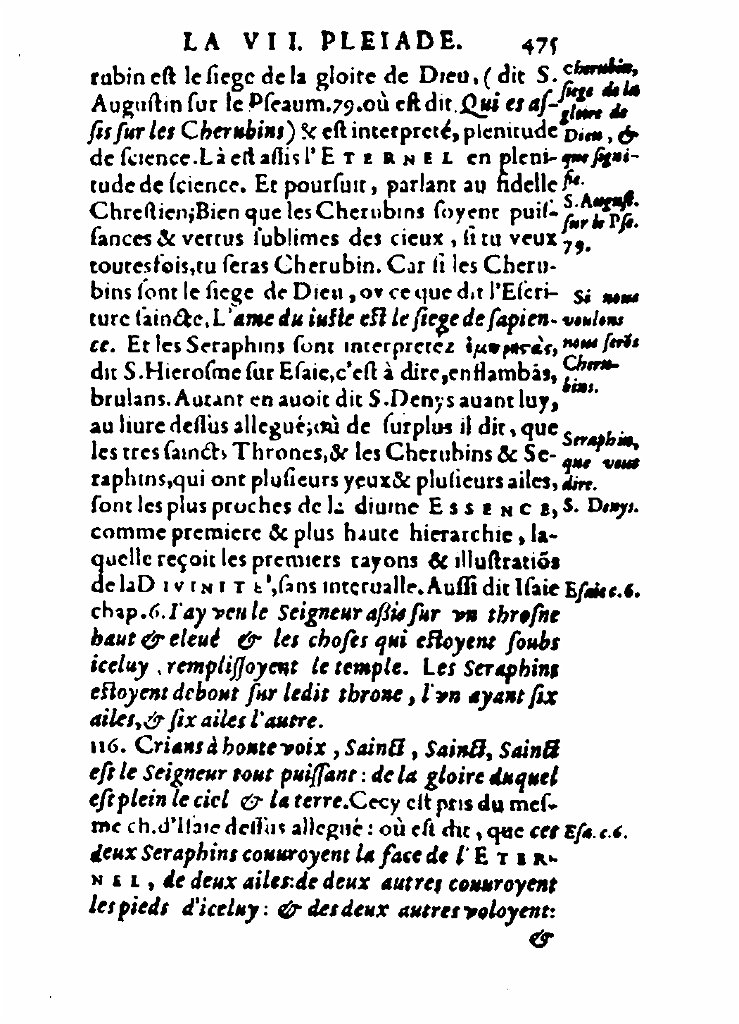 LA VII. PLEIADE. 475
rubin est le siege de la gloire de DIEU, ( dit S.
Augustin sur le Pseaum.79.où est dit. Qui es as-
sis sur les Cherubins) & est interpreté, plenitude
de science. Là est assis l'ETERNEL en pleni-
tude de science. Et poursuit, parlant au fidelle
Chrestien;Bien que les Cherubins soyent puis-
sances & vertus sublimes des cieux, si tu veux
toutesfois,tu seras Cherubin. Car si les Cheru-
bins sont le siege de Dieu, oy ce que dit l'Escri-
ture saincte. L'ame du iuste est le siege de sapien-
ce. Et les Seraphins sont interpretez
dit S.Hierosme sur Esaie,c'est à dire,enflambãs,
brulans. Autant en auoit dit S.Denys auant luy,
au liure dessus allegué;où de surplus il dit, que
les tres saincts Thrones,& les Cherubins & Se-
raphins,qui ont plusieurs yeux& plusieurs ailes,
sont les plus proches de la diuine ESSENCE,
comme premiere & plus haute hierarchie, la-
quelle reçoit les premiers rayons & illustratiõs
de laDIVINITE',sans interualle. Aussi dit Isaie
chap.6. I'ay veu le Seigneur aßis sur vn throsne
haut & eleué & les choses qui estoyent soubs
iceluy, remplissoyent le temple. Les Seraphins
estoyent debout sur ledit throne, l'vn ayant six
ailes,& six ailes l'autre.
116. Crians à houte voix, Sainct, Sainct, Sainct
est le Seigneur tout puissant : de la gloire duquel
est plein le ciel & la terre. Cecy est pris du mes-
me ch.d'Isaie dessus allegué : où est dit, que ces
deux Seraphins couuroyent la face de l'ETER-
NEL, de deux ailes:de deux autres couuroyent
les pieds d'iceluy : & des deux autres voloyent:
&
Cherubin,
siege de la
gloire de
Dieu, &
que signi-
fie.
S.August.
sur le Pse.
79.
Si nous
voulons
nous serõs
Cheru-
bins.
Seraphin,
que veut
dire.
S. Denys.
Esaie c.6.
Esa.c.6.